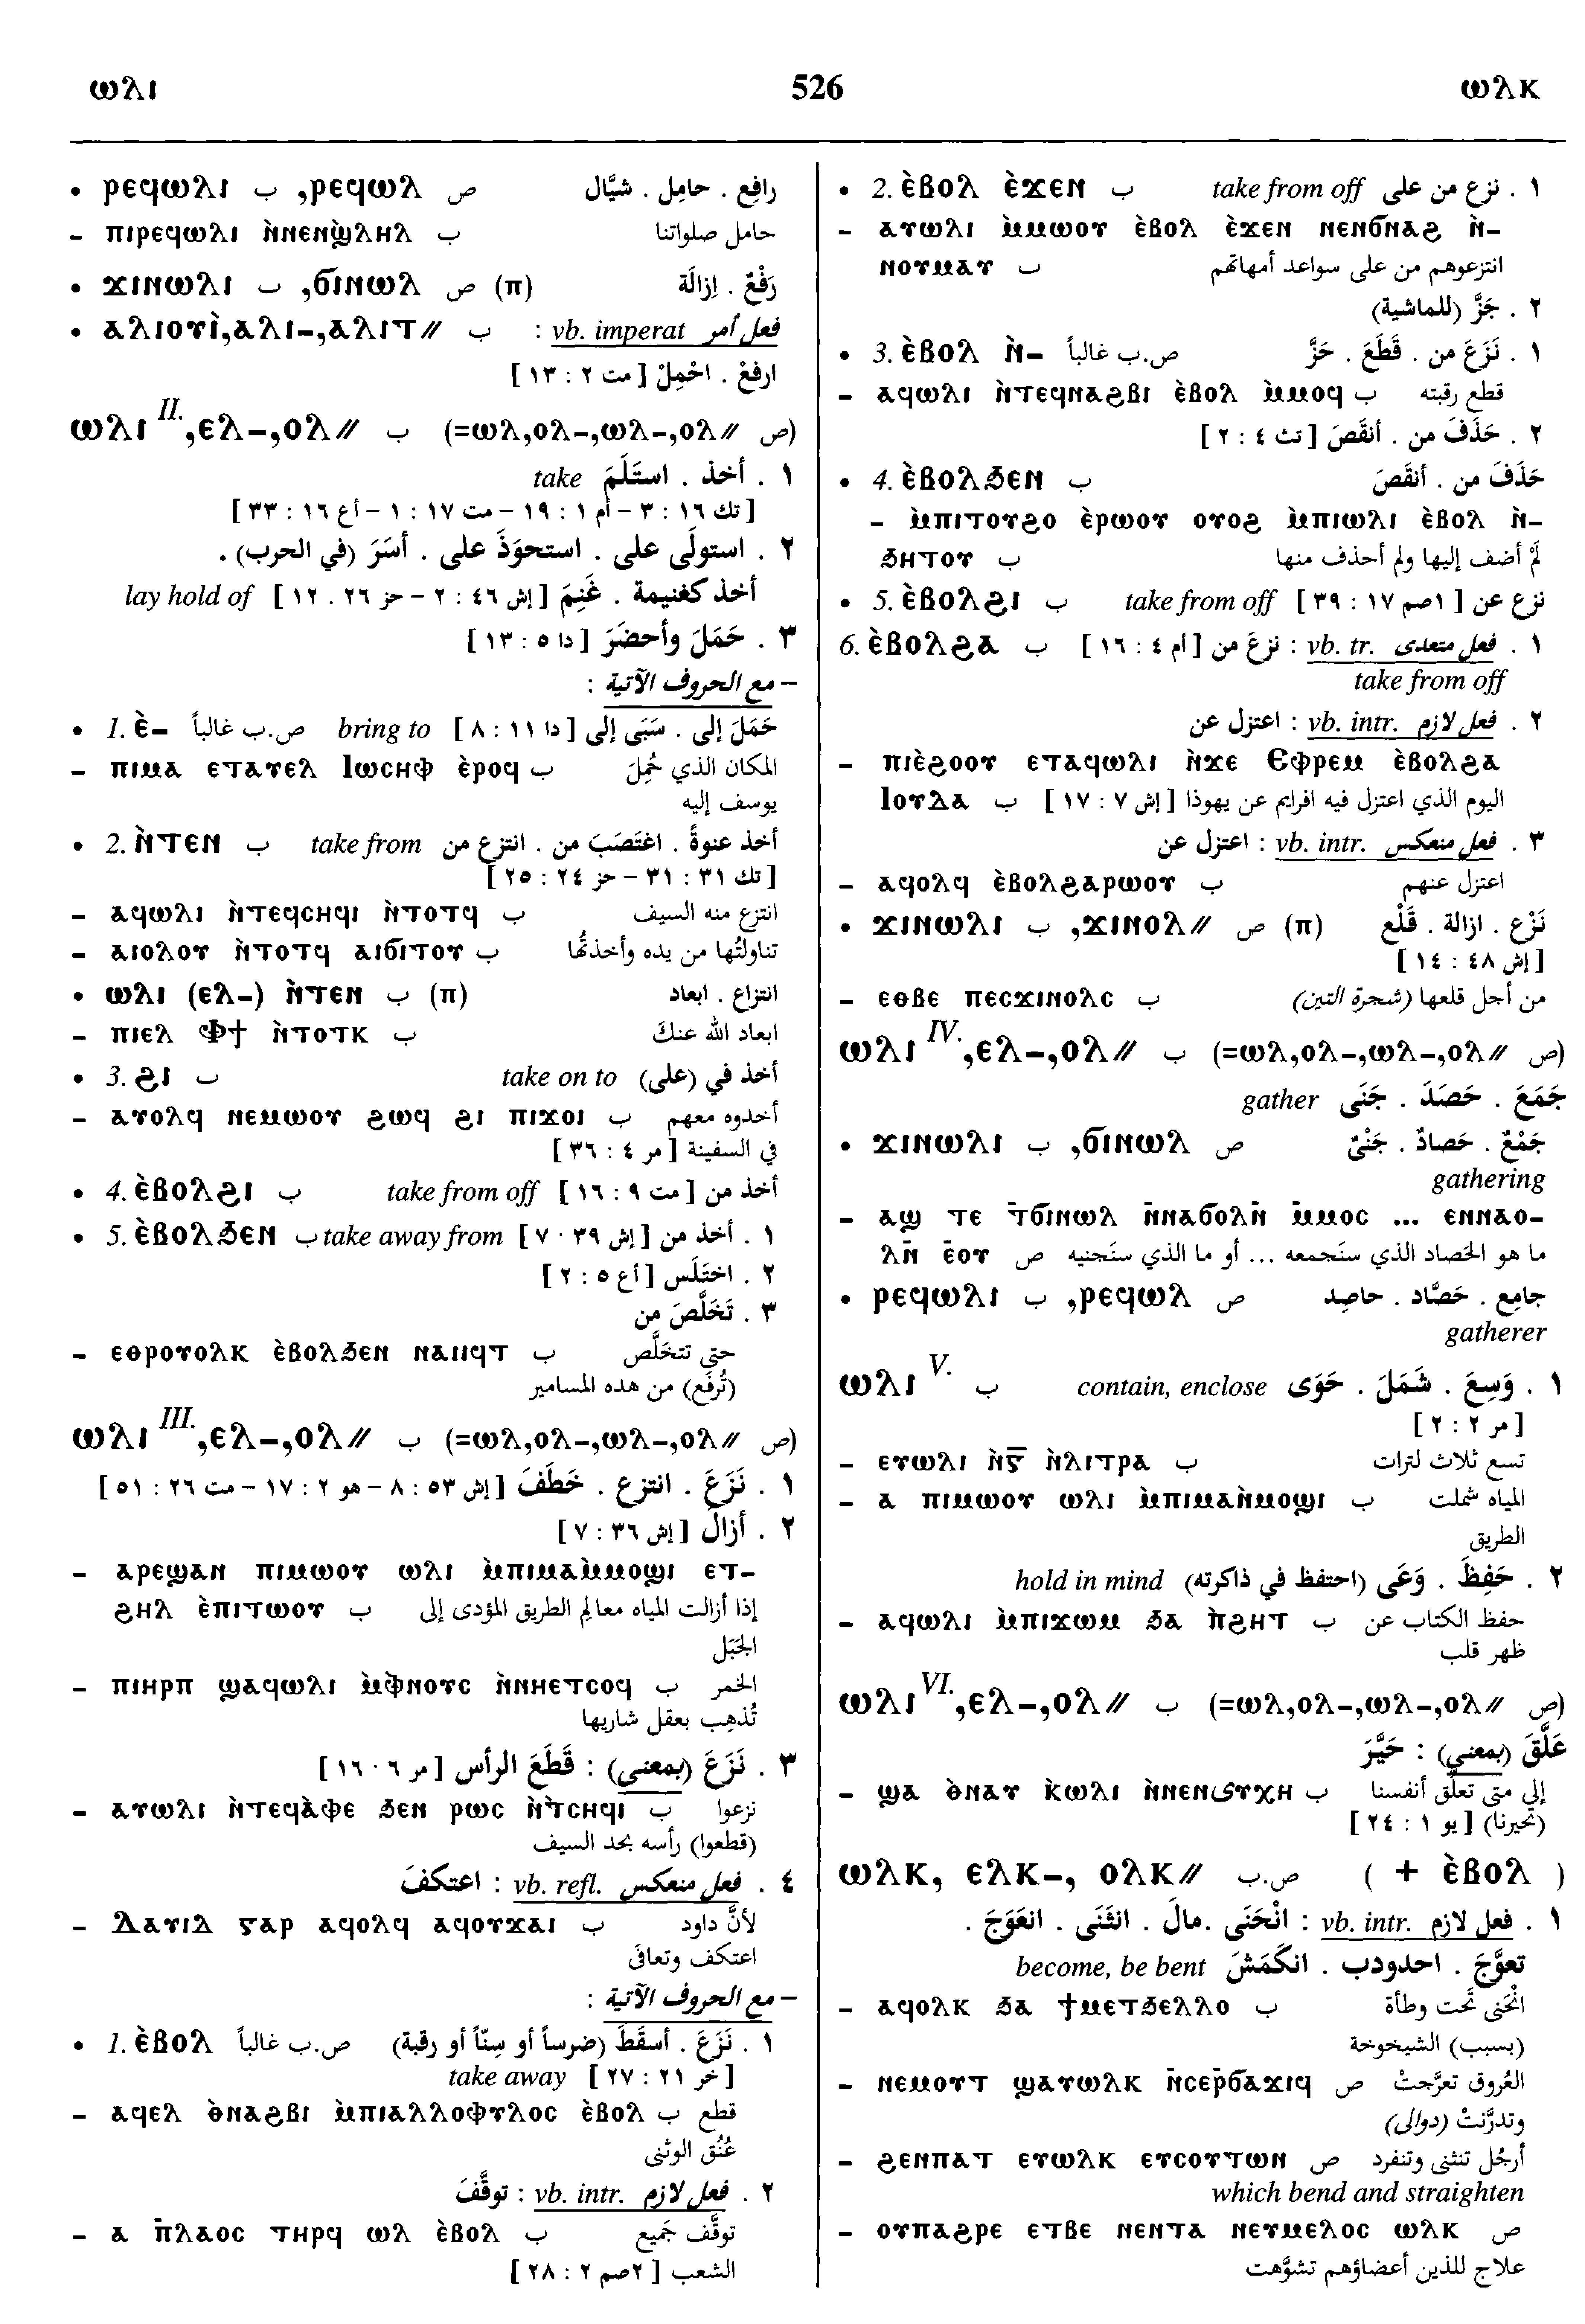 ⲱⲗⲓ 526 ⲱⲗⲕ
• ⲣⲉϥⲱⲗⲓ ب ,ⲣⲉϥⲱⲗ ص رافِع . حامِل . شيَّال
– ⲡⲓⲣⲉϥⲱⲗⲓ ⲛ̀ⲛⲉⲛϣ̀ⲗⲏⲗ ب حامل صلواتنا
• ϫⲓⲛⲱⲗⲓ ب ,ϭⲓⲛⲱⲗ ص (ⲡ) رَفْعٌ . إزالَة
• ⲁⲗⲓⲟⲩⲓ̀,ⲁⲗⲓ–,ⲁⲗⲓⲧ// ب : vb. imperat فعل أمر
ارفعْ . احْمِلْ [ مت ٢ : ١٣ ]
ⲱⲗⲓ II. ,ⲉⲗ–,ⲟⲗ// ب (=ⲱⲗ,ⲟⲗ–,ⲱⲗ–,ⲟⲗ// ص)
١ . أخذ . استَلَمَ take
[ تك ١٦ : ٣ – أم ١ : ١٩ – مت ١٧ : ١ – أع ١٦ : ٣٣ ]
٢ . استولَى على . استحوَذَ على . أسَرَ (في الحرب) .
أخذ كغنيمة . غَنِمَ [ إش ٤٦ : ٢ – حز ٢٦ . ١٢ ] lay hold of
٣ . حَمَلَ وأحضَرَ [ دا ٥ : ١٣ ]
– مع الحروف الآتية :
• 1. ⲉ̀– ص.ب غالباً bring to حَمَلَ إلى . سَبَى إلى [ دا ١١ : ٨ ]
– ⲡⲓⲙⲁ ⲉⲧⲁⲩⲉⲗ Ⲓⲱⲥⲏⲫ ⲉ̀ⲣⲟϥ ب المكان الذي حُمِلَ
يوسف إليه
• 2. ⲛ̀ⲧⲉⲛ ب take from أخذ عنوةً . اغتَصَبَ من . انتزع من
[ تك ٣١ : ٣١ – حز ٢٤ : ٢٥ ]
– ⲁϥⲱⲗⲓ ⲛ̀ⲧⲉϥⲥⲏϥⲓ ⲛ̀ⲧⲟⲧϥ ب انتزع منه السيف
– ⲁⲓⲟⲗⲟⲩ ⲛ̀ⲧⲟⲧϥ ⲁⲓϭⲓⲧⲟⲩ ب تناولتُها من يده وأخذتُها
• ⲱⲗⲓ (ⲉⲗ–) ⲛ̀ⲧⲉⲛ ب (ⲡ) انتزاع . ابعاد
– ⲡⲓⲉⲗ Ⲫϯ ⲛ̀ⲧⲟⲧⲕ ب ابعاد الله عنكَ
• 3. ϩⲓ ب take on to أخذ في (على)
– ⲁⲩⲟⲗϥ ⲛⲉⲙⲱⲟⲩ ϩⲱϥ ϩⲓ ⲡⲓϫⲟⲓ ب أخذوه معهم
في السفينة [ مر ٤ : ٣٦ ]
• 4. ⲉ̀ⲃⲟⲗϩⲓ ب take from off أخذ من [ مت ٩ : ١٦ ]
• 5. ⲉ̀ⲃⲟⲗϧⲉⲛ ب take away from ١ . أخذ من [ إش ٣٩ . ٧ ]
٢ . اختَلَس [ أع ٥ : ٢ ]
٣ . تَخَلَّصَ من
– ⲉⲑⲣⲟⲩⲟⲗⲕ ⲉ̀ⲃⲟⲗϧⲉⲛ ⲛⲁⲓⲓϥⲧ ب حتى تتخلَّص
(تُرفَع) من هذه المسامير
ⲱⲗⲓ III. ,ⲉⲗ–,ⲟⲗ// ب (=ⲱⲗ,ⲟⲗ–,ⲱⲗ–,ⲟⲗ// ص)
١ . نَزَعَ . انتزع . خَطَفَ [ إش ٥٣ : ٨ – هو ٢ : ١٧ – مت ٢٦ : ٥١ ]
٢ . أزالَ [ إش ٣٦ : ٧ ]
– ⲁⲣⲉϣⲁⲛ ⲡⲓⲙⲱⲟⲩ ⲱⲗⲓ ⲙ̀ⲡⲓⲙⲁⲙ̀ⲙⲟϣⲓ ⲉⲧ–
ϩⲏⲗ ⲉ̀ⲡⲓⲧⲱⲟⲩ ب إذا أزالت المياه معالم الطريق المؤدى إلى
الجَبَل
– ⲡⲓⲏⲣⲡ ϣⲁϥⲱⲗⲓ ⲙ̀ⲫⲛⲟⲩⲥ ⲛ̀ⲛⲏⲉⲧⲥⲟϥ ب الخمر
تُذهِب بعقل شاربها
٣ . نَزَعَ (بمعنى) : قَطَعَ الرأس [ مر ٦ . ١٦ ]
– ⲁⲩⲱⲗⲓ ⲛ̀ⲧⲉϥⲁ̀ⲫⲉ ϧⲉⲛ ⲣⲱⲥ ⲛ̀ⲧ̀ⲥⲏϥⲓ ب نزعوا
(قطعوا) رأسه بحد السيف
٤ . فعل منعكس vb. refl. : اعتكفَ
– Ⲇⲁⲩⲓⲇ ⲅⲁⲣ ⲁϥⲟⲗϥ ⲁϥⲟⲩϫⲁⲓ ب لأنَّ داود
اعتكف وتعافى
– مع الحروف الآتية :
• 1. ⲉ̀ⲃⲟⲗ ص.ب غالباً ١ . نَزَعَ . أسقَطَ (ضرساً أو سِنّاً أو رقبة)
[ خر ٢١ : ٢٧ ] take away
– ⲁϥⲉⲗ ⲑ̀ⲛⲁϩⲃⲓ ⲙ̀ⲡⲓⲁⲗⲗⲟⲫⲩⲗⲟⲥ ⲉ̀ⲃⲟⲗ ب قطع
عُنُق الوثنى
٢ . فعل لازم vb. intr. : توقَّفَ
– ⲁ ⲡ̀ⲗⲁⲟⲥ ⲧⲏⲣϥ ⲱⲗ ⲉ̀ⲃⲟⲗ ب توقَّف جميع
الشعب [ ٢صم ٢ : ٢٨ ]
• 2. ⲉ̀ⲃⲟⲗ ⲉ̀ϫⲉⲛ ب take from off ١ . نزع من على
– ⲁⲩⲱⲗⲓ ⲙ̀ⲙⲱⲟⲩ ⲉ̀ⲃⲟⲗ ⲉ̀ϫⲉⲛ ⲛⲉⲛϭⲛⲁϩ ⲛ̀–
ⲛⲟⲩⲙⲁⲩ ب انتزعوهم من على سواعد أمهاتهم
٢ . جَزَّ (للماشية)
• 3. ⲉ̀ⲃⲟⲗ ⲛ̀– ص.ب غالباً ١ . نَزَعَ من . قَطَعَ . حَزَّ
– ⲁϥⲱⲗⲓ ⲛ̀ⲧⲉϥⲛⲁϩⲃⲓ ⲉ̀ⲃⲟⲗ ⲙ̀ⲙⲟϥ ب قطع رقبته
٢ . حَذَفَ من . أنقَصَ [ تث ٤ : ٢ ]
• 4. ⲉ̀ⲃⲟⲗϧⲉⲛ ب حَذَفَ من . أنقَصَ
– ⲙ̀ⲡⲓⲧⲟⲩϩⲟ ⲉ̀ⲣⲱⲟⲩ ⲟⲩⲟϩ ⲙ̀ⲡⲓⲱⲗⲓ ⲉ̀ⲃⲟⲗ ⲛ̀–
ϧⲏⲧⲟⲩ ب لَمْ أضف إليها ولم أحذف منها
• 5. ⲉ̀ⲃⲟⲗϩⲓ ب take from off نزع عن [ ١صم ١٧ : ٣٩ ]
6. ⲉ̀ⲃⲟⲗϩⲁ ب ١ . فعل متعدى vb. tr. : نزعَ من [ أم ٤ : ١٦ ]
take from off
٢ . فعل لازم vb. intr. : اعتزل عن
– ⲡⲓⲉ̀ϩⲟⲟⲩ ⲉⲧⲁϥⲱⲗⲓ ⲛ̀ϫⲉ Ⲉⲫⲣⲉⲙ ⲉ̀ⲃⲟⲗϩⲁ
Ⲓⲟⲩⲇⲁ ب اليوم الذي اعتزل فيه افرايم عن يهوذا [ إش ٧ : ١٧ ]
٣ . فعل منعكس vb. intr. : اعتزل عن
– ⲁϥⲟⲗϥ ⲉ̀ⲃⲟⲗϩⲁⲣⲱⲟⲩ ب اعتزل عنهم
• ϫⲓⲛⲱⲗⲓ ب ,ϫⲓⲛⲟⲗ// ص (ⲡ) نَزْع . ازالة . قَلْع
[ إش ٤٨ : ١٤ ]
– ⲉⲑⲃⲉ ⲡⲉⲥϫⲓⲛⲟⲗⲥ ب من أجل قلعها (شجرة التين)
ⲱⲗⲓ IV. ,ⲉⲗ–,ⲟⲗ// ب (=ⲱⲗ,ⲟⲗ–,ⲱⲗ–,ⲟⲗ// ص)
جَمَعَ . حَصَدَ . جَنَى gather
• ϫⲓⲛⲱⲗⲓ ب ,ϭⲓⲛⲱⲗ ص جَمْعٌ . حَصادٌ . جَنْيٌ
gathering
– ⲁϣ ⲧⲉ ⲧ̄ϭⲓⲛⲱⲗ ⲛ̄ⲛⲁϭⲟⲗⲛ̄ ⲙ̄ⲙⲟⲥ ... ⲉⲛⲛⲁⲟ–
ⲗⲛ̄ ⲉ̄ⲟⲩ ص ما هو الحَصاد الذي سنَجمعه ... أو ما الذي سنَجنيه
• ⲣⲉϥⲱⲗⲓ ب ,ⲣⲉϥⲱⲗ ص جامِع . حَصَّاد . حاصِد
gatherer
ⲱⲗⲓ V. ب contain, enclose ١ . وَسِعَ . شَمَلَ . حَوَى
[ مر ٢ : ٢ ]
– ⲉⲩⲱⲗⲓ ⲛ̀ⲅ̅ ⲛ̀ⲗⲓⲧⲣⲁ ب تسع ثلاث لترات
– ⲁ ⲡⲓⲙⲱⲟⲩ ⲱⲗⲓ ⲙ̀ⲡⲓⲙⲁⲛ̀ⲙⲟϣⲓ ب المياه شملت
الطريق
٢ . حَفِظَ . وَعَى (احتفظ في ذاكرته) hold in mind
– ⲁϥⲱⲗⲓ ⲙ̀ⲡⲓϫⲱⲙ ϧⲁ ⲡ̀ϩⲏⲧ ب حفظ الكتاب عن
ظهر قلب
ⲱⲗⲓ VI. ,ⲉⲗ–,ⲟⲗ// ب (=ⲱⲗ,ⲟⲗ–,ⲱⲗ–,ⲟⲗ// ص)
عَلَّقَ (بمعنى) : حَيَّرَ
– ϣⲁ ⲑ̀ⲛⲁⲩ ⲕ̀ⲱⲗⲓ ⲛ̀ⲛⲉⲛⲯⲩⲭⲏ ب إلى متى تعلِّق أنفسنا
(تحيرنا) [ يو ١ : ٢٤ ]
ⲱⲗⲕ, ⲉⲗⲕ–, ⲟⲗⲕ// ص.ب ( + ⲉ̀ⲃⲟⲗ )
١ . فعل لازم vb. intr. : انْحَنَى .مالَ . انثَنَى . انعَوَجَ .
تعوَّجَ . احدودب . انكَمَشَ become, be bent
– ⲁϥⲟⲗⲕ ϧⲁ ϯⲙⲉⲧϧⲉⲗⲗⲟ ب انْحَنى تَحت وطأة
(بسبب) الشيخوخة
– ⲛⲉⲙⲟⲩⲧ ϣⲁⲩⲱⲗⲕ ⲛ̄ⲥⲉⲣ̄ϭⲁϫⲓϥ ص العُروق تعرَّجتْ
وتدرَّنتْ (دوالى)
– ϩⲉⲛⲡⲁⲧ ⲉⲩⲱⲗⲕ ⲉⲩⲥⲟⲩⲧⲱⲛ ص أرجُل تنثنى وتنفرد
which bend and straighten
– ⲟⲩⲡⲁϩⲣⲉ ⲉⲧⲃⲉ ⲛⲉⲛⲧⲁ ⲛⲉⲩⲙⲉⲗⲟⲥ ⲱⲗⲕ ص
علاج للذين أعضاؤهم تشوَّهت